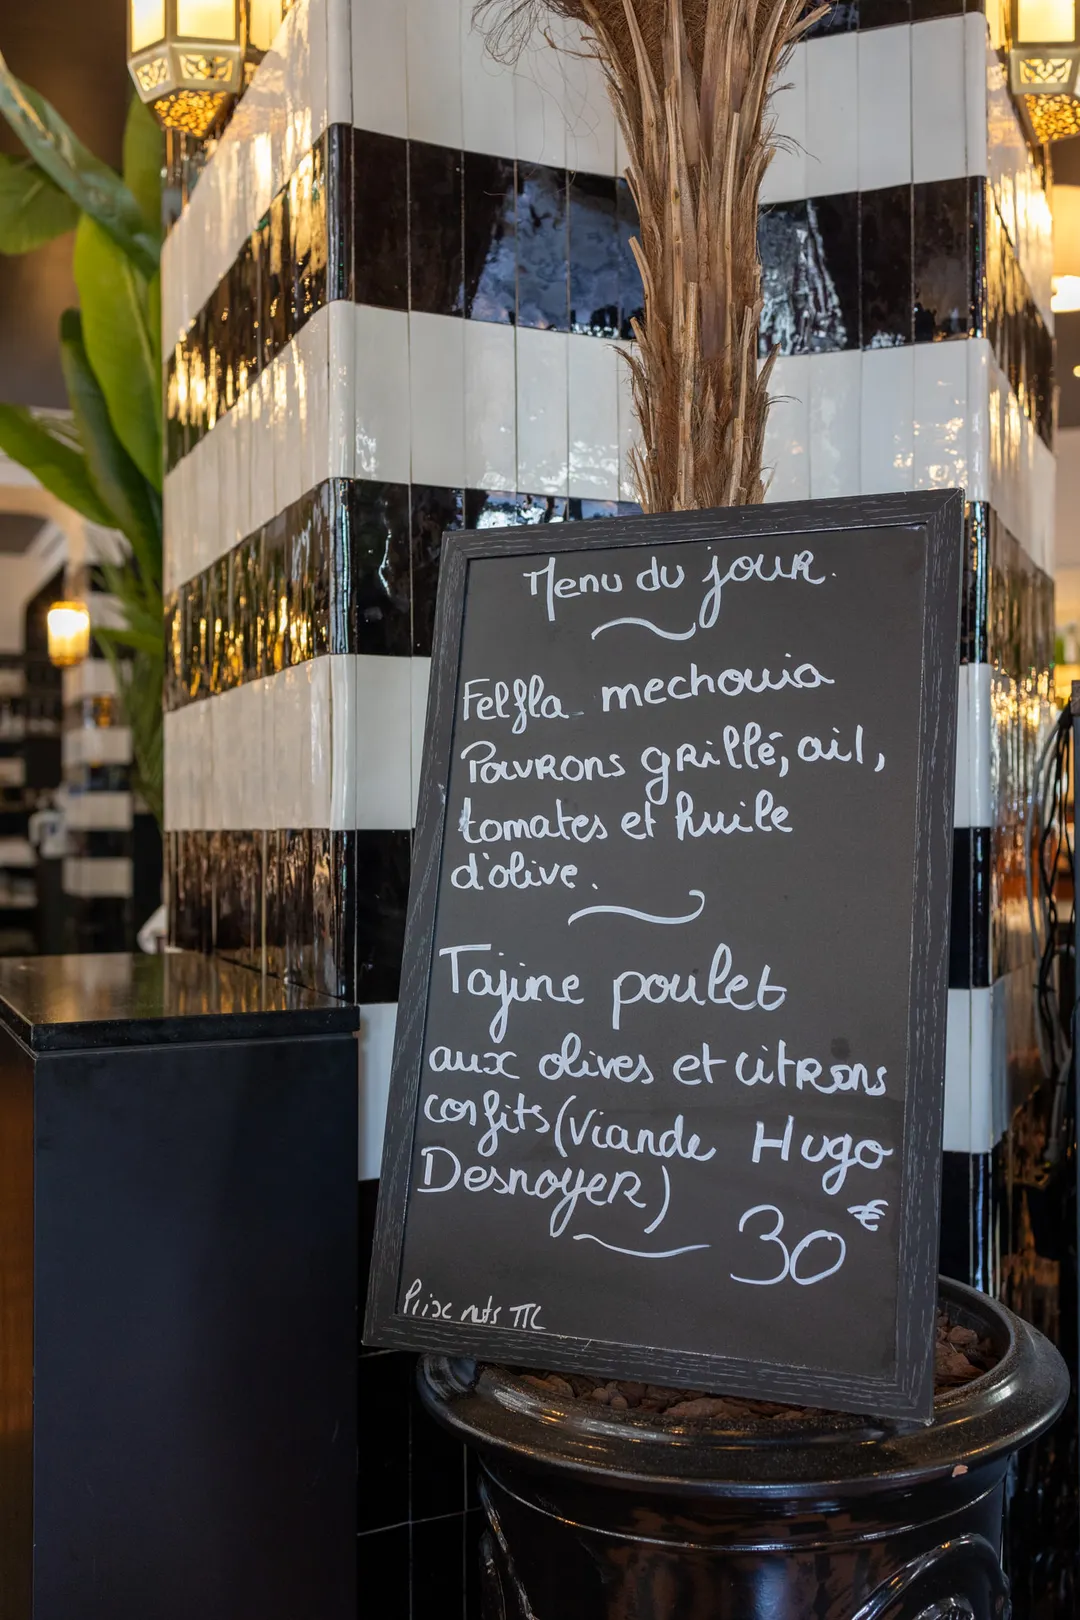 Menu du jour.
Felfla mechouia
Pouvrons grillé, ail,
tomates et huile
d'olive.
Tajine poulet
aux olives et citrons
confits (Viande Hugo
Desnoyer)
30€
Prix nets TTC